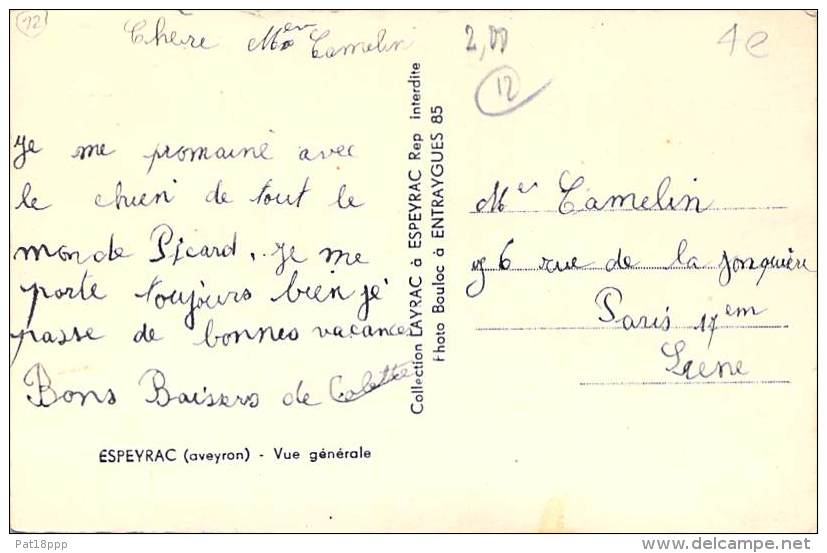 12
Chere Mer Camelin
Je me promainé avec
le chien de tout le
monde Picard. Je me
porte toujours bien jé
passe de bonnes vacances
Bons Baisers de Colette
ESPEYRAC (aveyron) - Vue générale
Collection LAYRAC à ESPEYRAC Rep interdite
Photo Bouloc à ENTRAYGUES 85
2,00
12
1e
Mer Camelin
6 rue de la jonquière
Paris 17em
Sene
Pat18ppp
delcampe.net